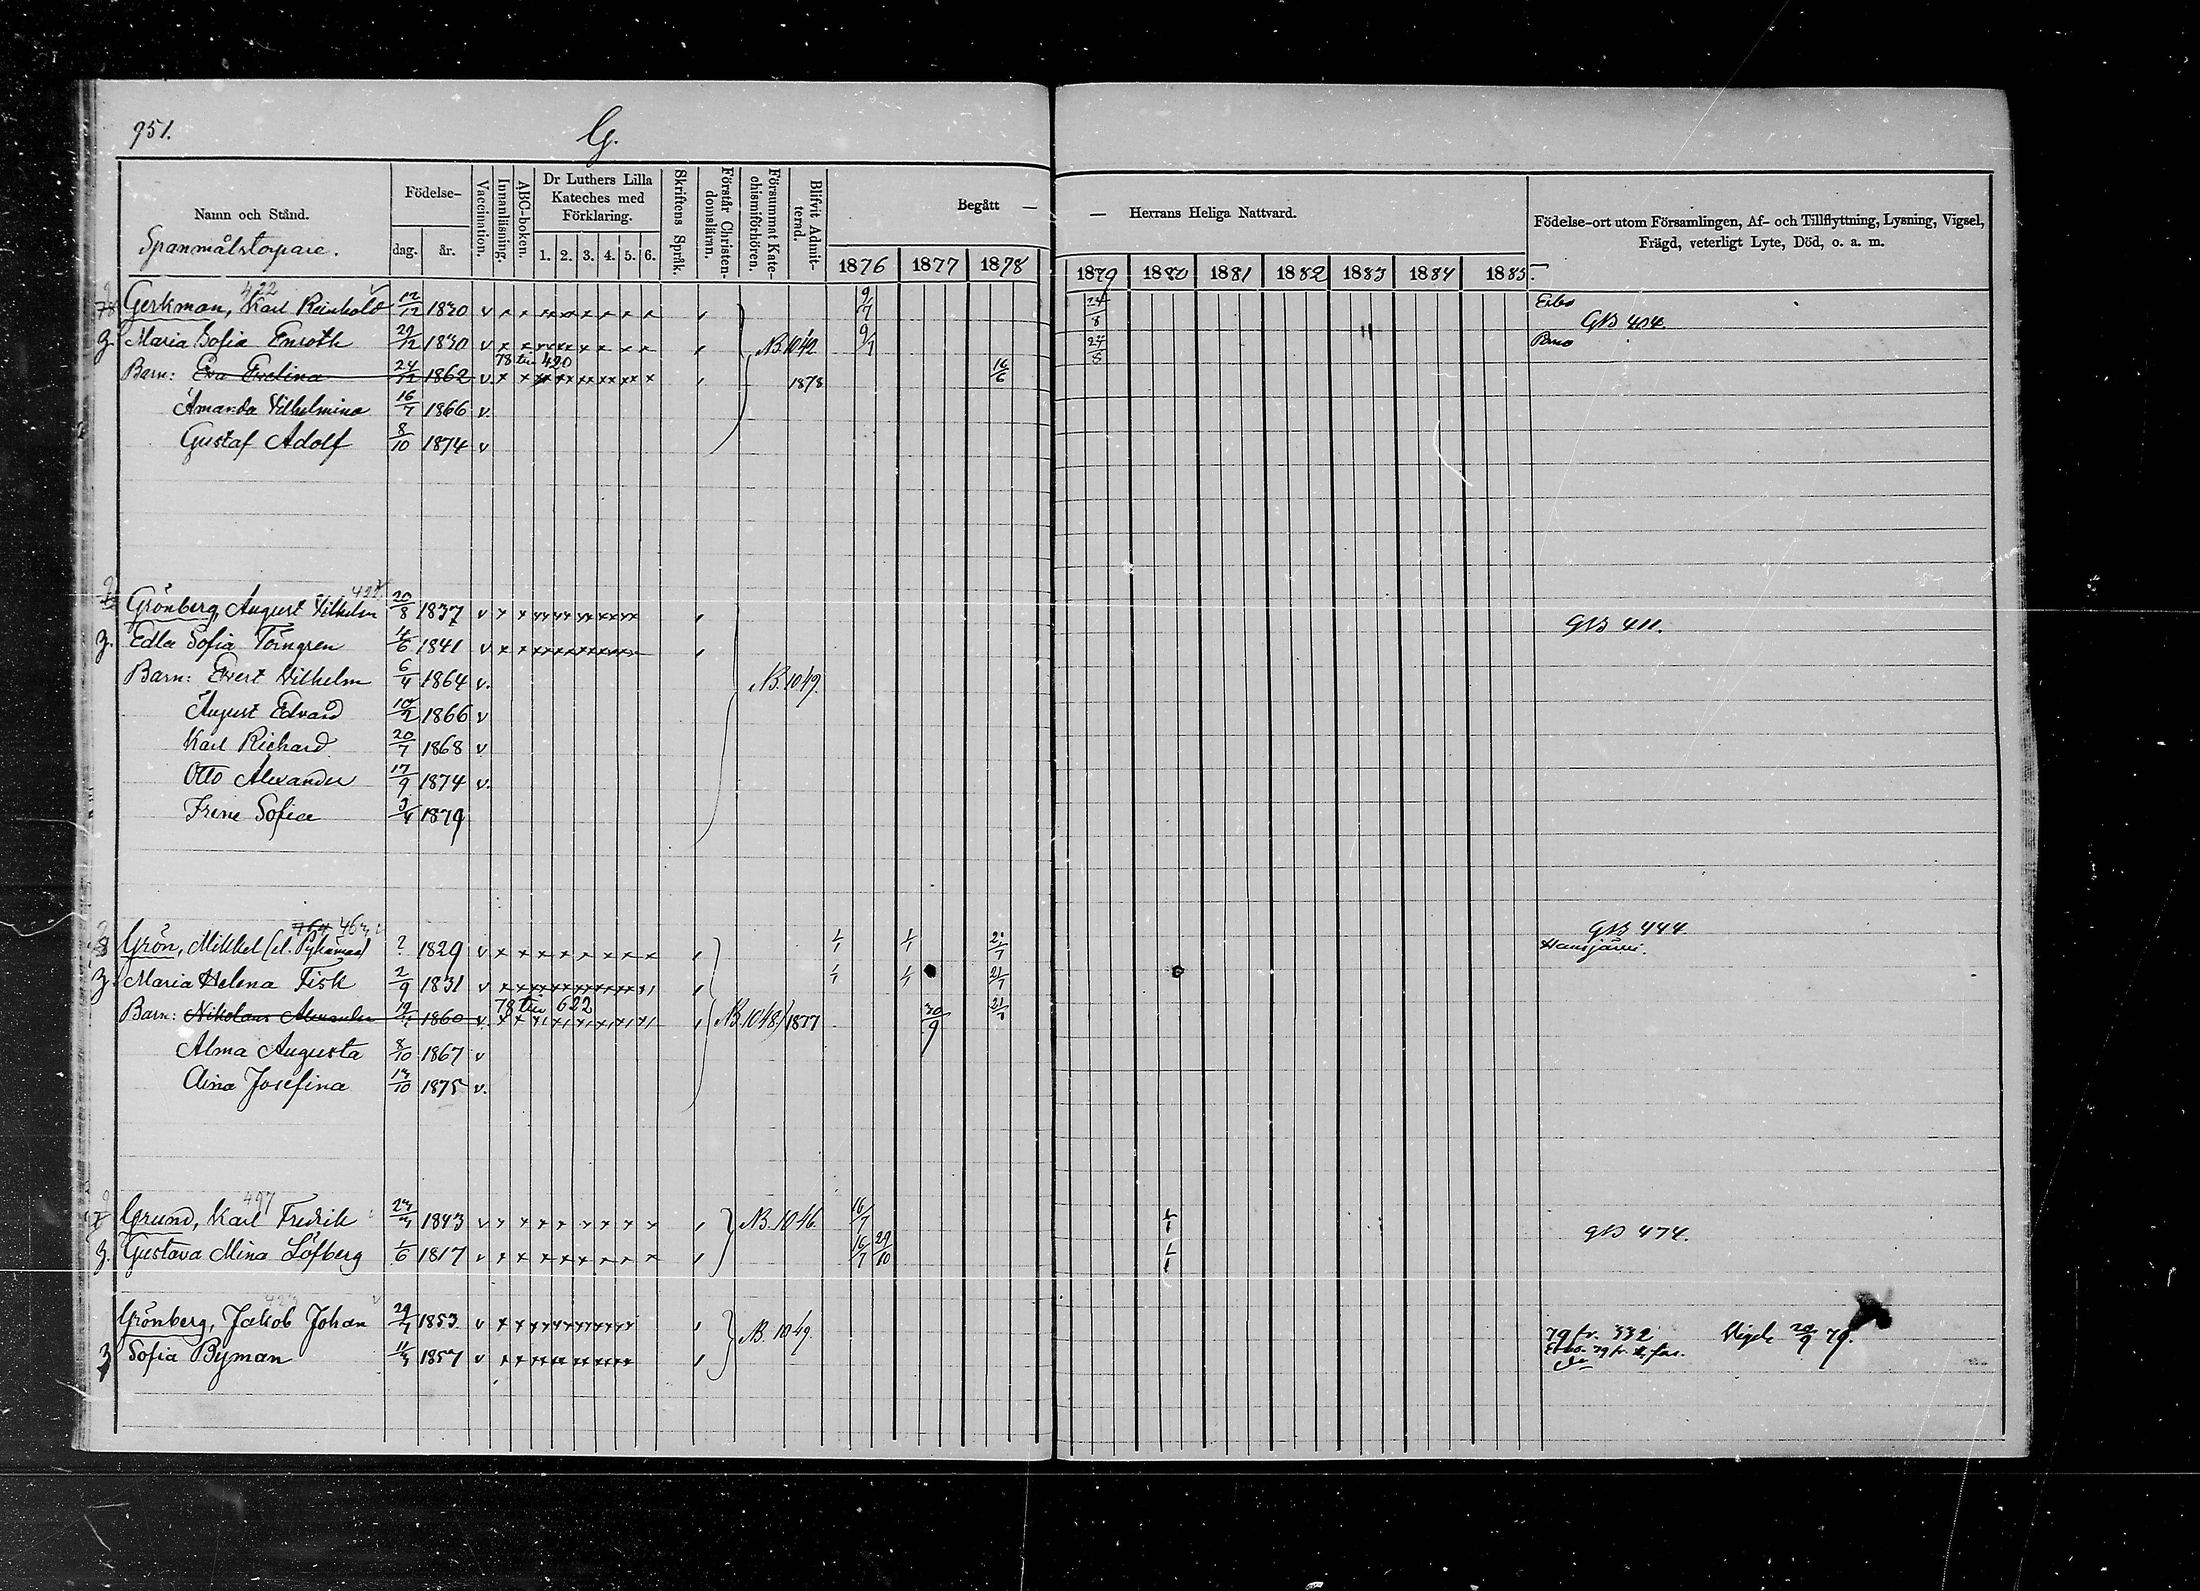 951.
G.
Namn och Stånd.
Spanmålstorpare.
Födelse-
dag.
år.
Vaccination.
Innanläsning.
ABC-boken.
Dr Luthers Lilla
Kateches med
Förklaring.
1. 2. 3. 4. 5. 6.
Skriftens Språk.
Förstår Christen-
domsläran.
Försummat Kate-
chismiförhören.
Blifvit Admit-
terad.
Begått —
1876 1877 1878
— Herrans Heliga Nattvard.
1879 1880 1881 1882 1883 1884 1885
Födelse-ort utom Församlingen, Af- och Tillflyttning, Lysning, Vigsel,
Frägd, veterligt Lyte, Död, o. a. m.
422
Gerkman, Karl Reinhold 12/12 1830 v 9/7 24/8 Esbo
GB 404.
Maria Sofia Enroth 29/12 1830 v NB 1042 9/7 24/8
78 till 420
Barn: Eva Evelina 24/12 1862 v 1878 16/6
Amanda Vilhelmina 16/7 1866 v.
Gustaf Adolf 8/10 1874 v
Grönberg, August Vilhelm 20/8 1837 v
GB 411.
Edla Sofia Törngren 14/6 1841 v
Barn: Evert Vilhelm 6/4 1864 v. NB. 1049.
August Edvard 10/2 1866 v
Karl Richard 20/7 1868 v
Otto Alexander 17/9 1874 v.
Irene Sofia 3/4 1879
463
Grön, Mikkel ? 1829 v 1/1 1/1 21/7 GB 444.
Hausjärvi.
Maria Helena Fisk 2/9 1831 v 1/1 1/1 21/7
78 till 622
Barn: Nikolaus Alexander 1860 v NB. 1048 1877 30/9 21/7
Alma Augusta 8/10 1867 v
Aina Josefina 13/10 1875 v.
497
Grund, Karl Fredrik 1843 v NB. 1046. 16/7 1/1 GB 474.
Gustava Mina Löfberg 1/6 1817 v 16/7 29/10 1/1
Grönberg, Jakob Johan 1853 v NB. 1049. 79 fr. 332 Vigde 79.
Sofia Byman 1857 v